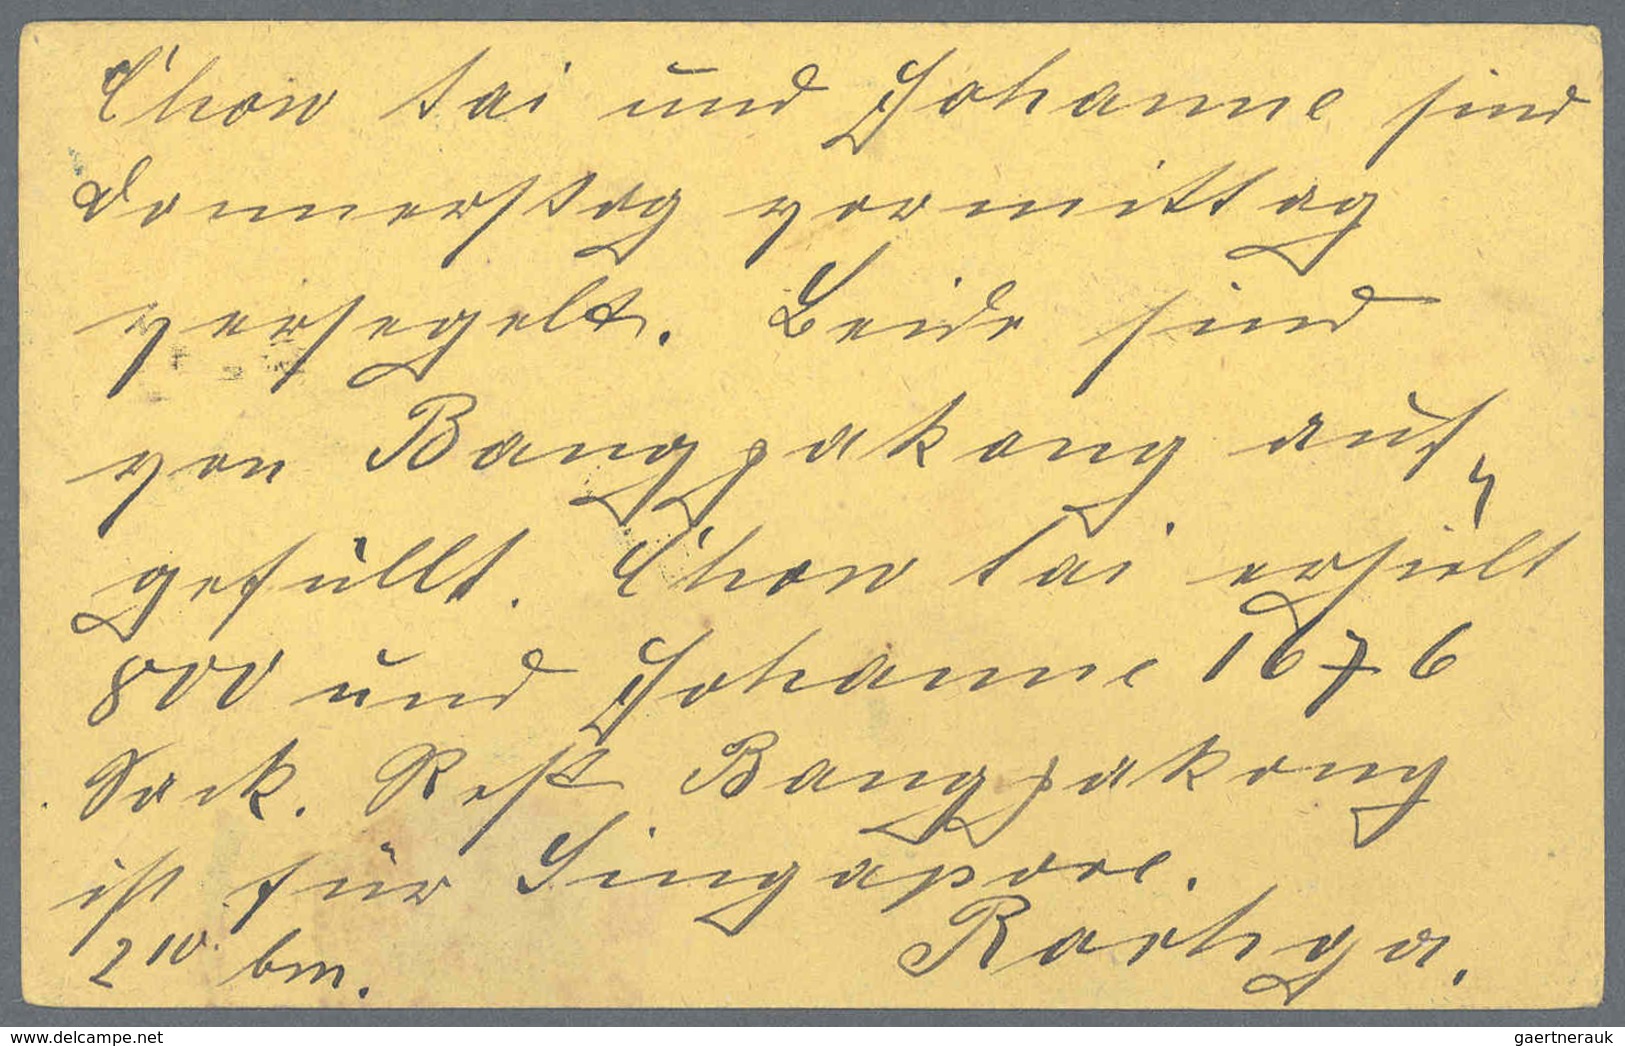 Chow tai und Johanne sind
Donnerstag vormittag
versegelt. Beide sind
von Bangpakong auf,
gefüllt. Chow tai erhielt
800 und Johanne 1676
Sack. Rest Bangpakong
ist für Singapore.
2 10. bm.
gaertnerauk
www.delcampe.net